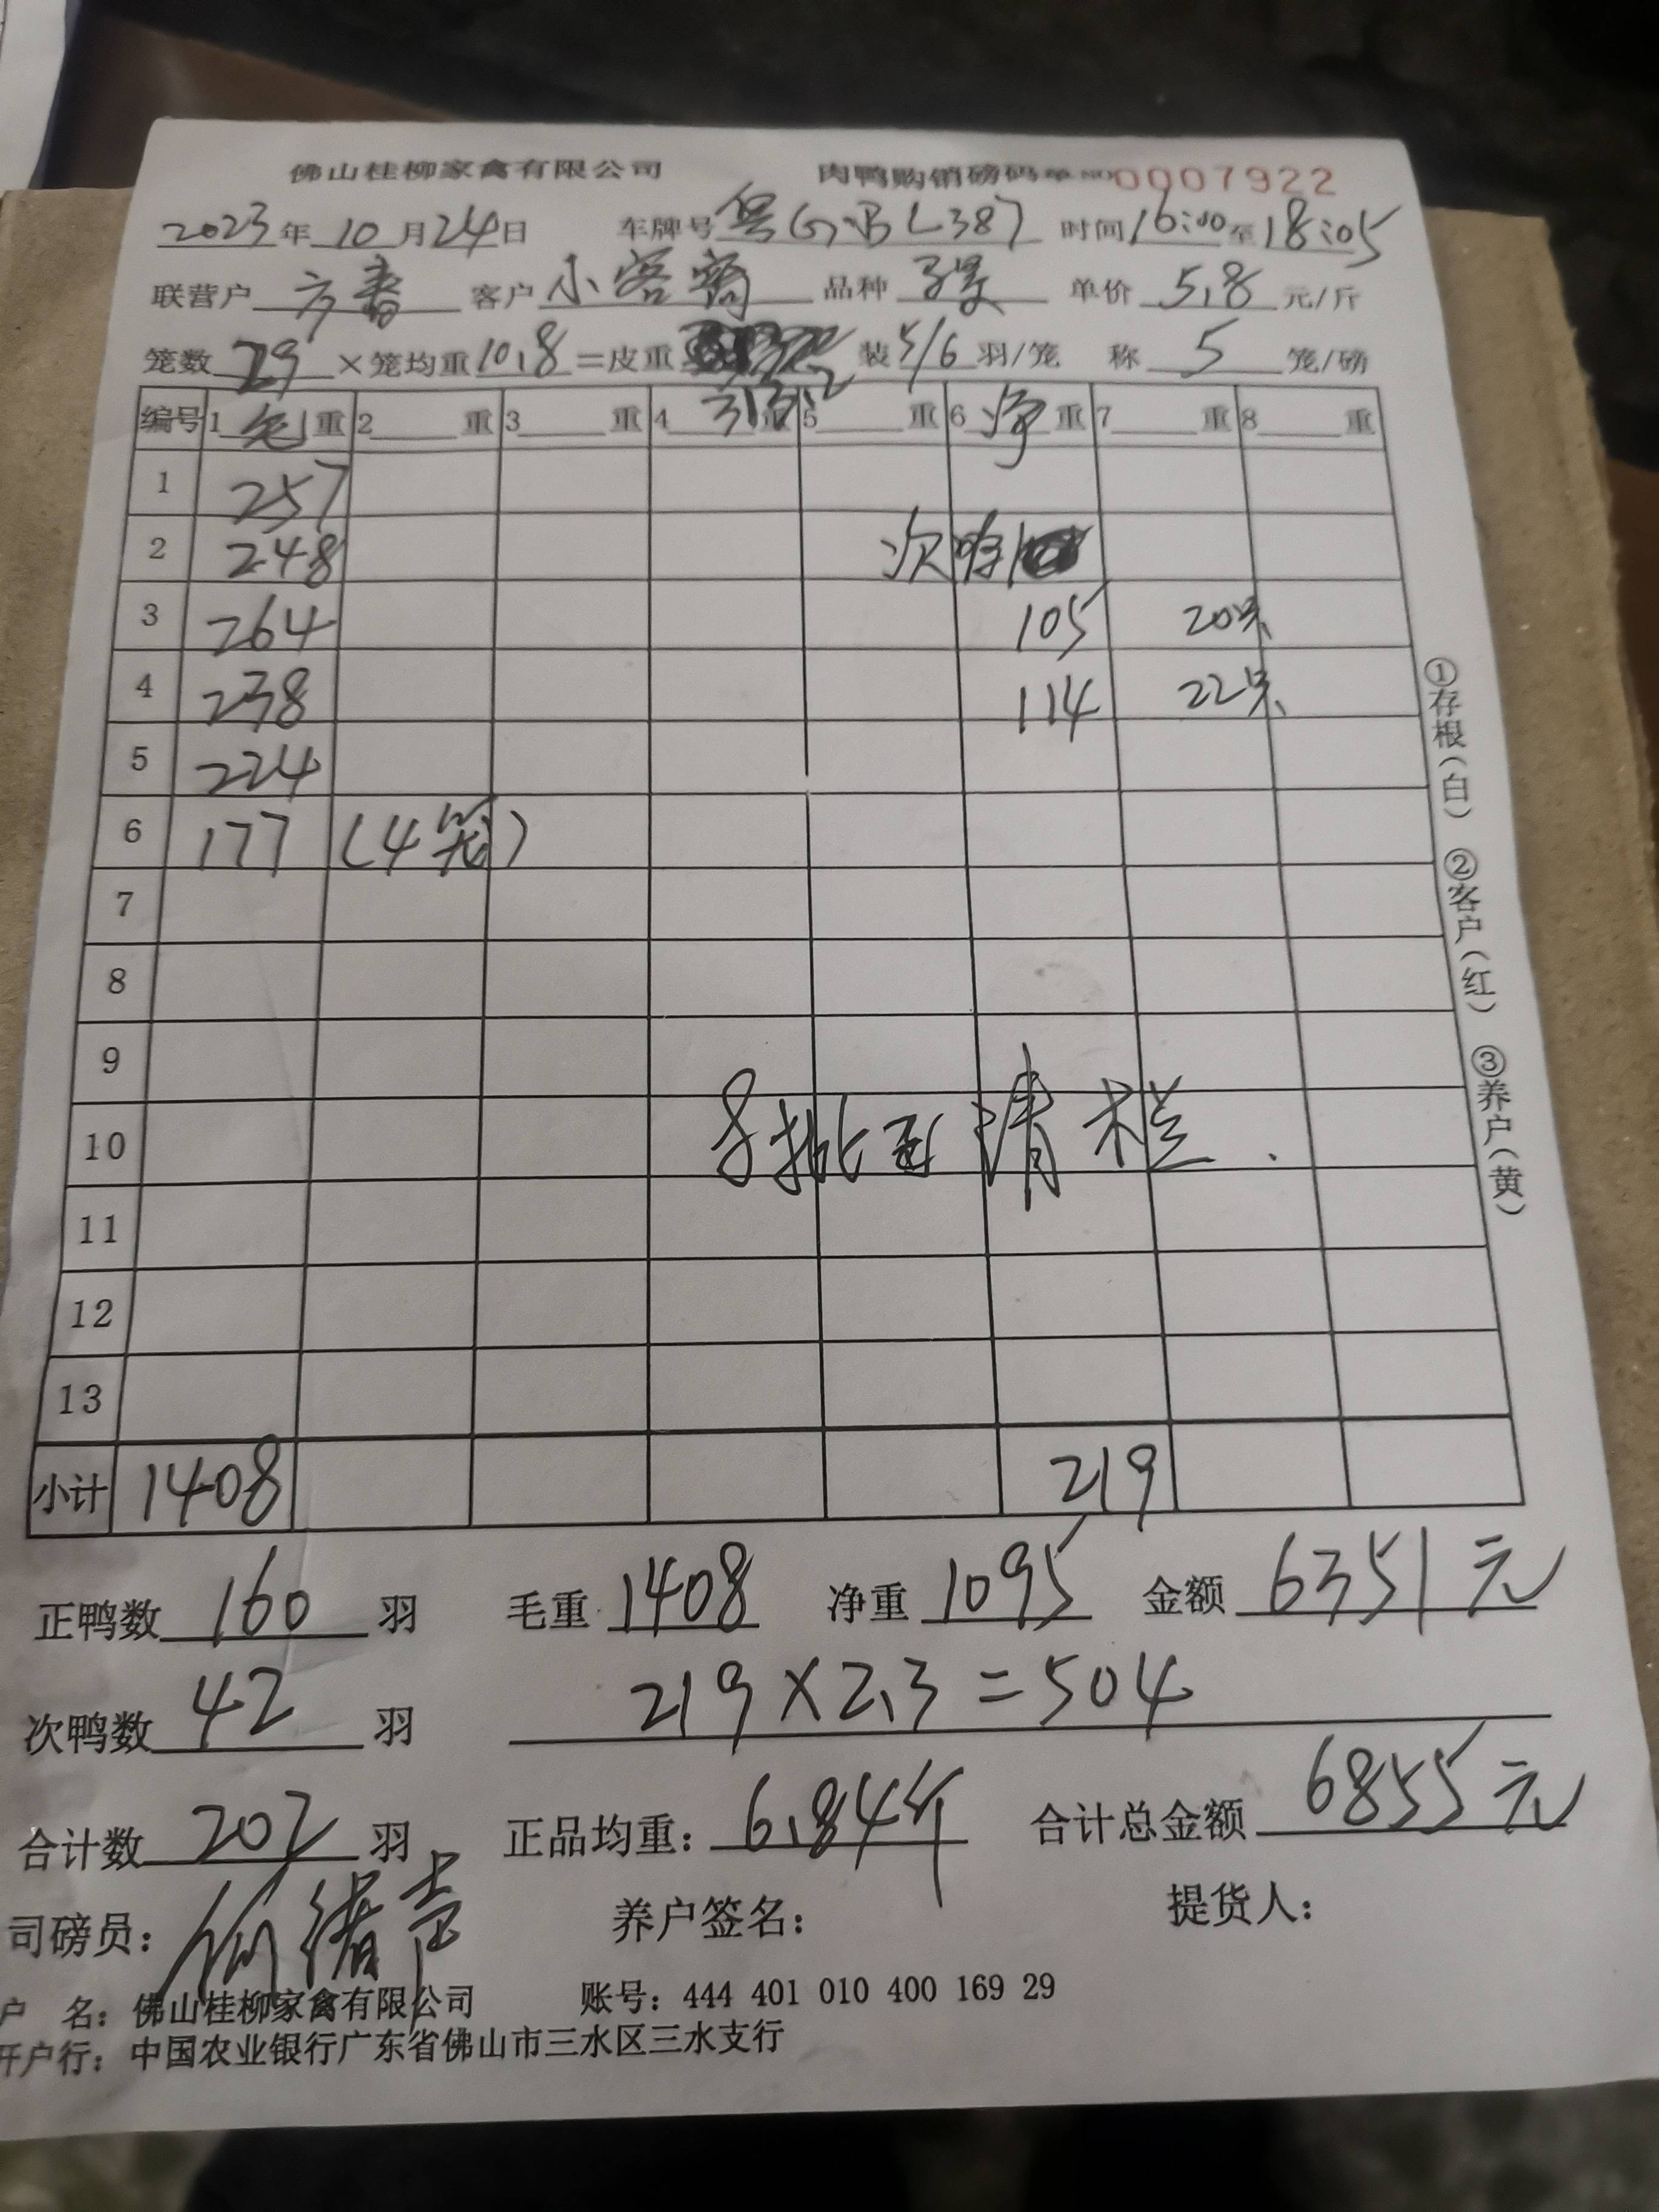 佛山桂柳家禽有限公司 肉鸭购销磅码单 NO 0007922
2023年10月24日 车牌号 粤G·BL387 时间 16:00至18:05
联营户 方春 客户 小容 品种 单价 5.8 元/斤
笼数 29 ×笼均重 10.8 =皮重 313.2 装 5/6 羽/笼 称 5 笼/磅
编号 1 毛重 2 重 3 重 4 重 5 重 6 净重 7 重 8 重
1 257
2 248 次鸭
3 264 105 20只
4 238 114 22只
5 224
6 177 (4笼)
7
8
9
10 清栏.
11
12
13
小计 1408 219
正鸭数 160 羽 毛重 1408 净重 1095 金额 6351元
次鸭数 42 羽 219×2.3=504
合计数 202 羽 正品均重: 6.84斤 合计总金额 6855元
司磅员: 养户签名: 提货人:
户 名: 佛山桂柳家禽有限公司 账号: 444 401 010 400 169 29
开户行: 中国农业银行广东省佛山市三水区三水支行
①存根(白) ②客户(红) ③养户(黄)